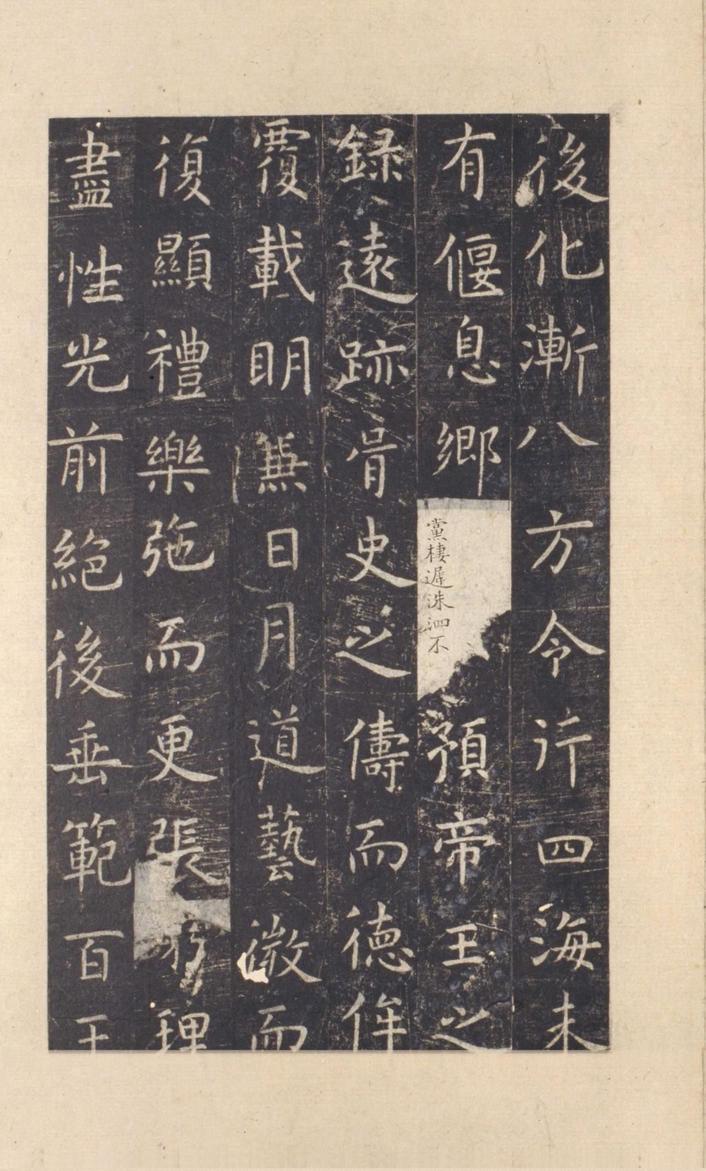 後化漸八方令行四海未
有偃息鄉黨棲遲洙泗不預帝王之
録遠跡胥史之儔而徳侔
覆載明兼日月道藝微而
復顯禮樂弛而更張理
盡性光前絶後垂範百王